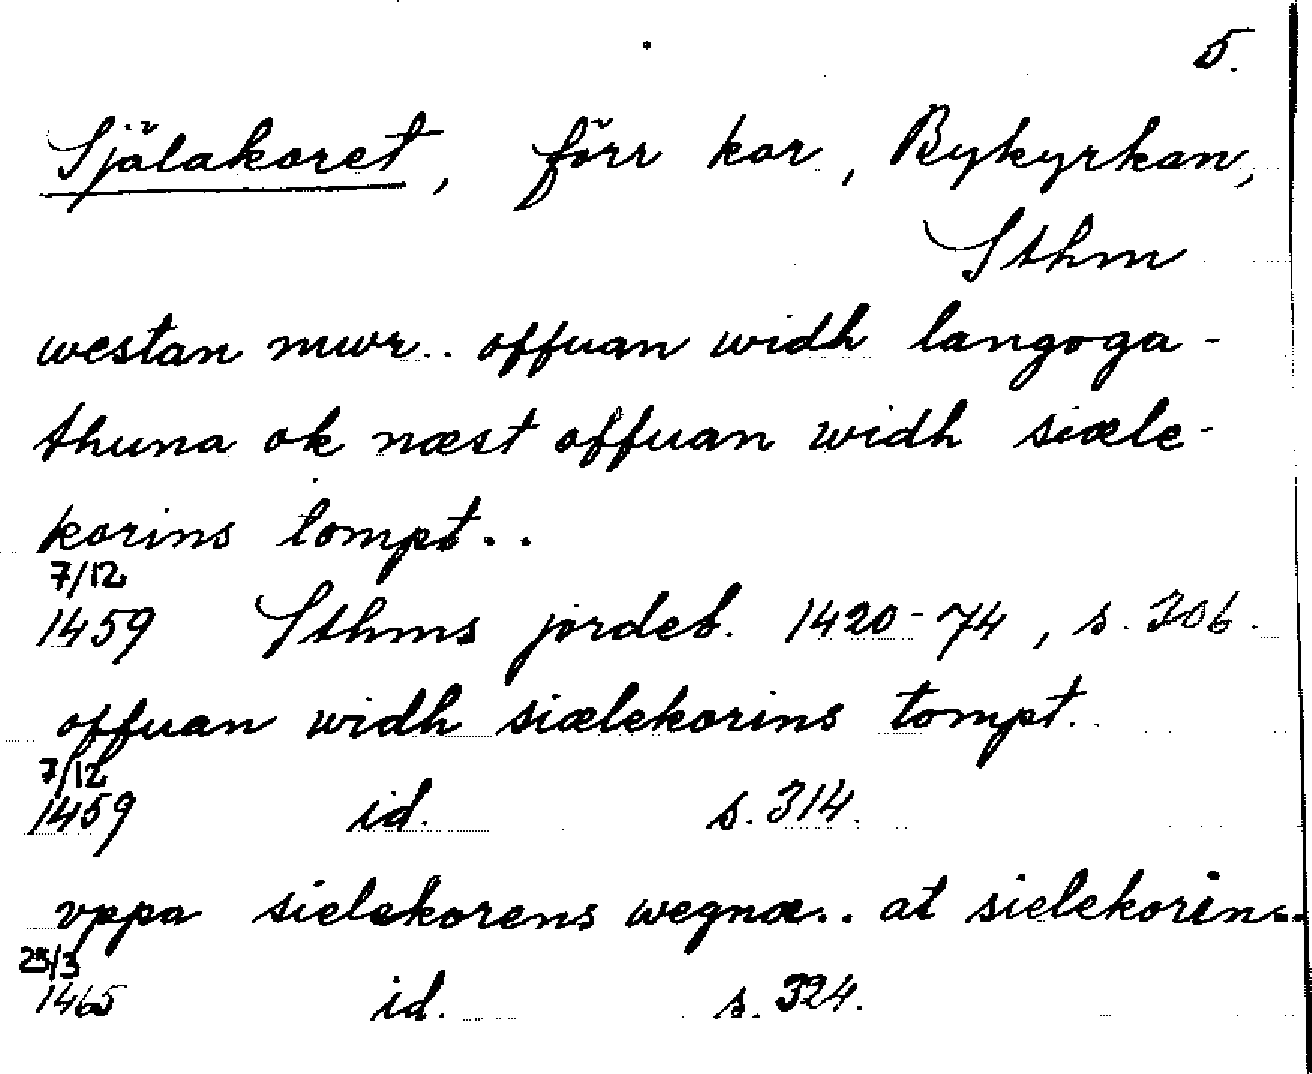 5.
Själakoret, förr kor, Bykyrkan,
Sthm
westan mwr.. offuan widh langoga-
thuna ok næst offuan widh siæle-
korins tompt..
7/12
1459 Sthms jordeb. 1420-74, s. 306.
offuan widh siælekorins tompt..
7/12
1459 id. s. 314.
vppa sielekorens wegnæ.. at sielekorin..
25/3
1465 id. s. 324.